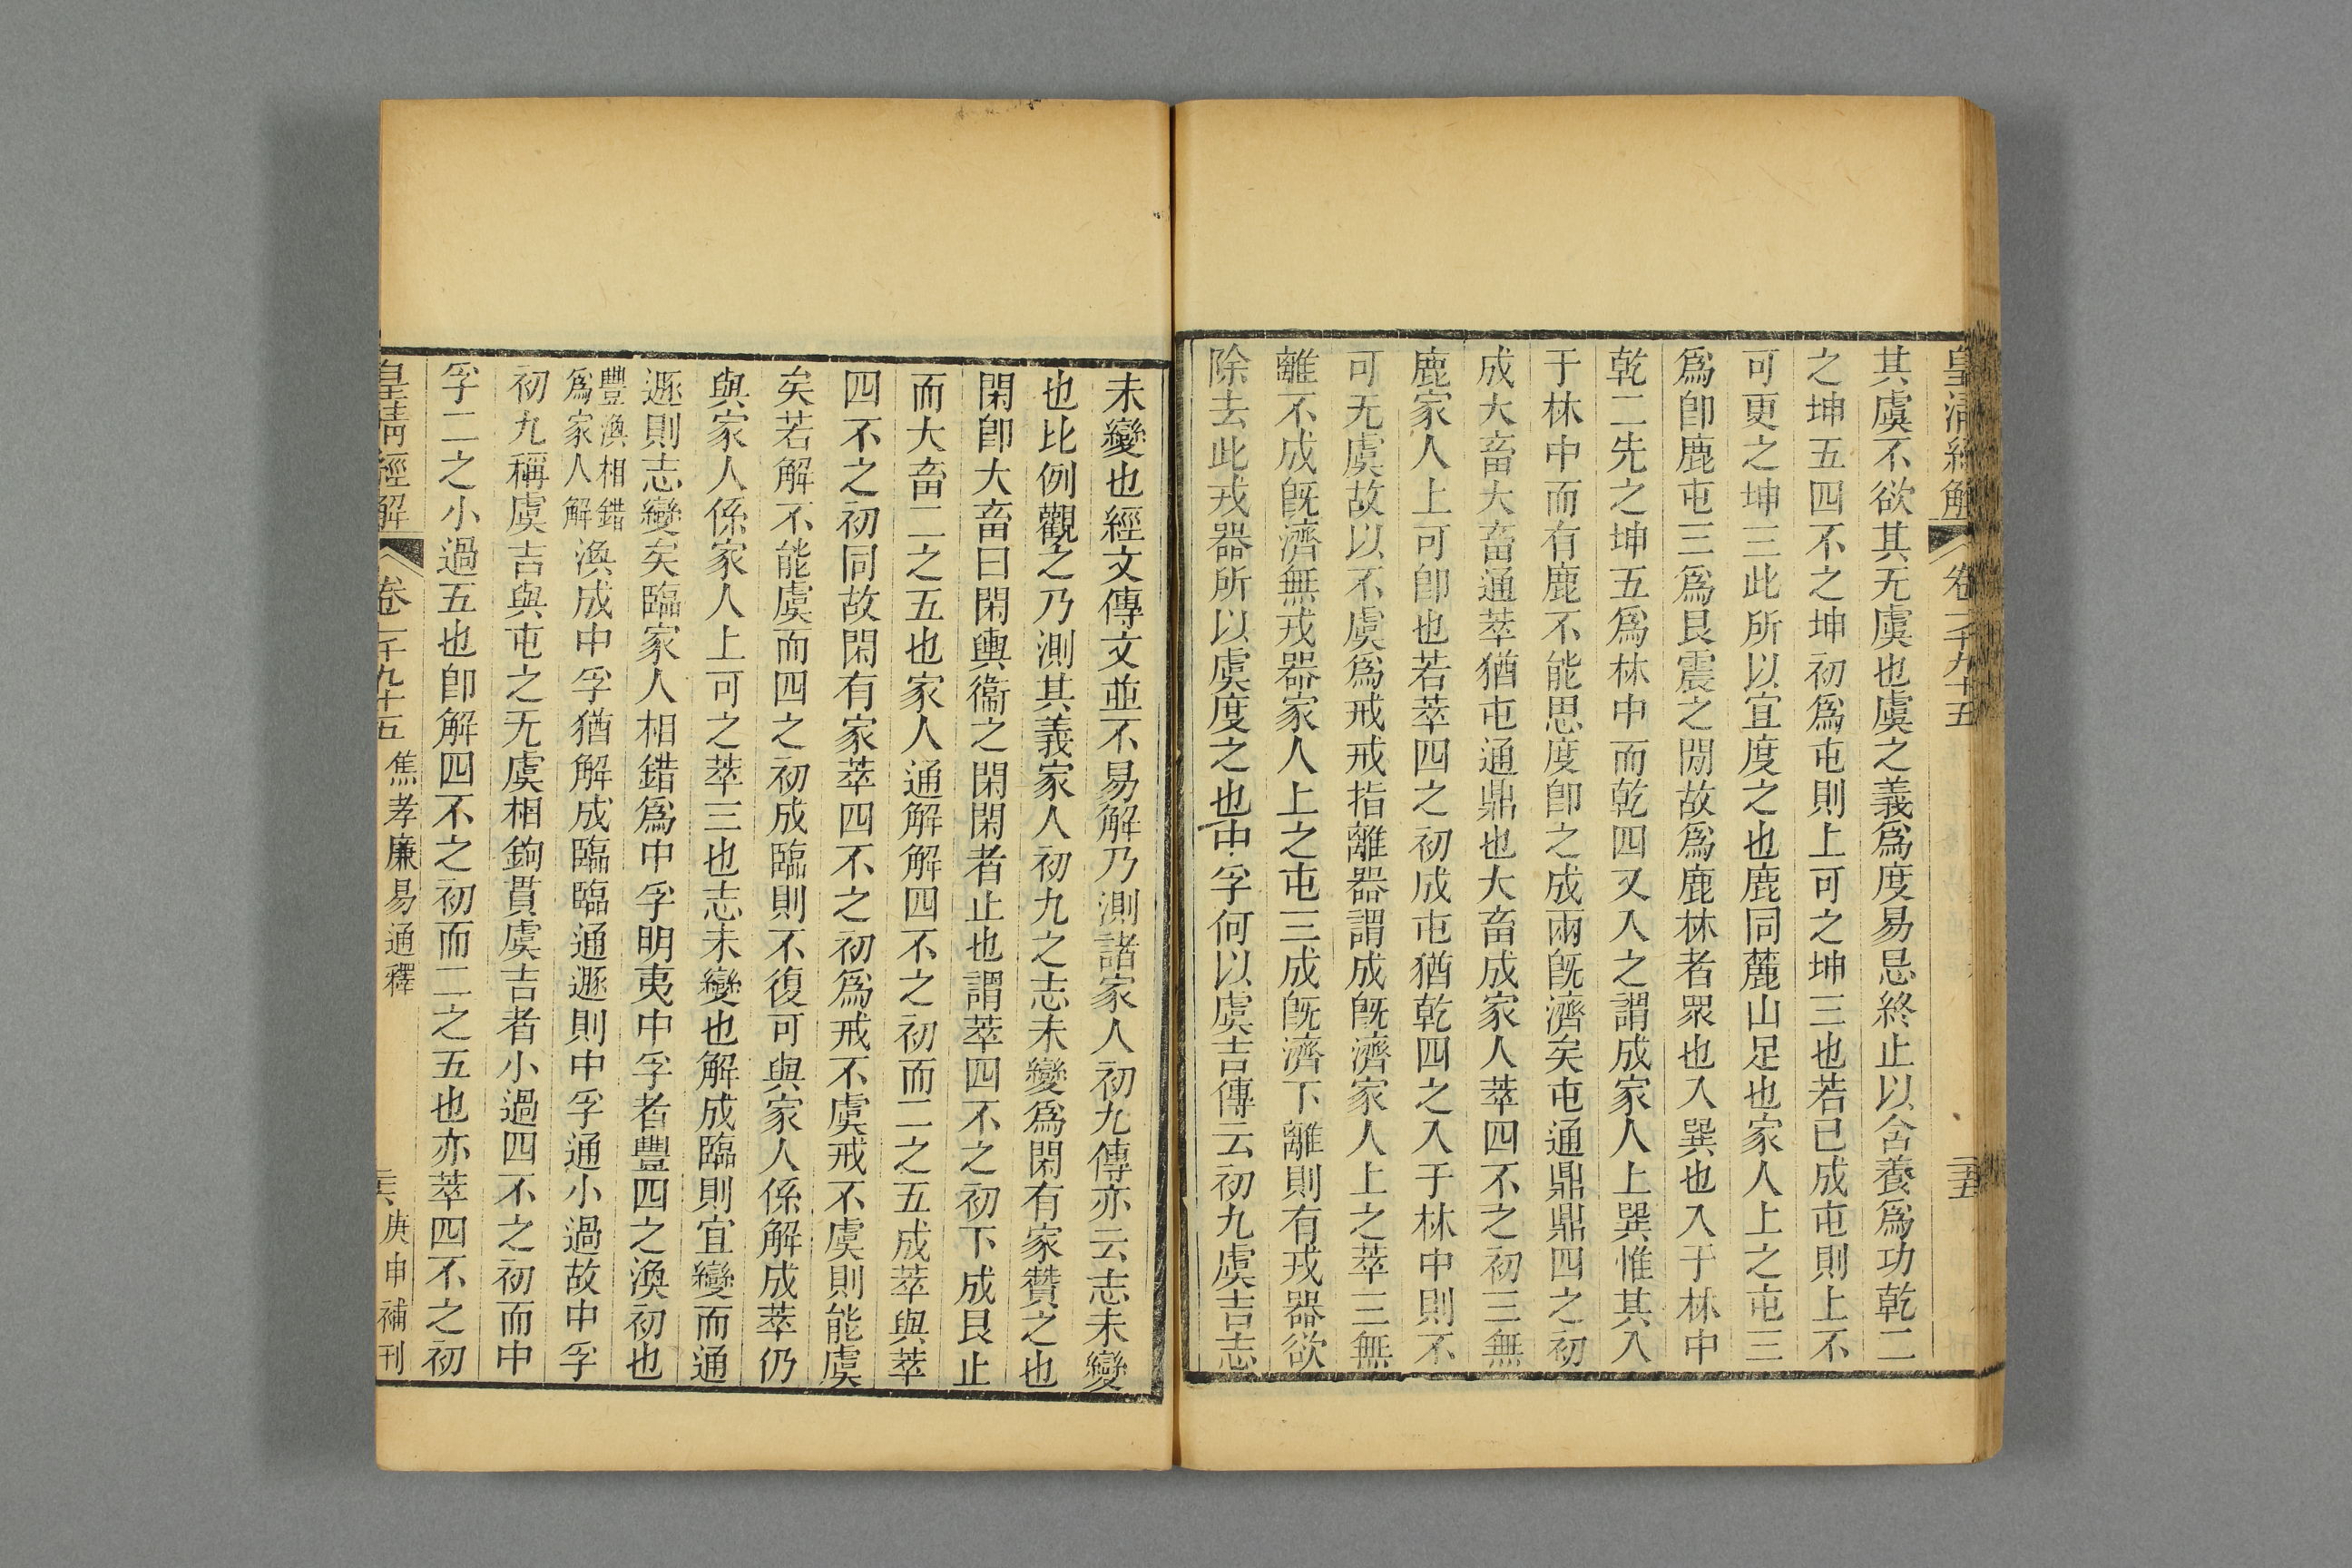 皇清經解 卷一千九十五 三五
其虞不欲其无虞也虞之義爲度易忌終止以含養爲功乾二
之坤五四不之坤初爲屯則上可之坤三也若已成屯則上不
可更之坤三此所以宜度之也鹿同麓山足也家人上之屯三
爲卽鹿屯三爲艮震之閒故爲鹿林者眾也入巽也入于林中
乾二先之坤五爲林中而乾四又入之謂成家人上巽惟其入
于林中而有鹿不能思度卽之成兩旣濟矣屯通鼎鼎四之初
成大畜大畜通萃猶屯通鼎也大畜成家人萃四不之初三無
鹿家人上可卽也若萃四之初成屯猶乾四之入于林中則不
可无虞故以不虞爲戒戒指離器謂成旣濟家人上之萃三無
離不成旣濟無戎器家人上之屯三成旣濟下離則有戎器欲
除去此戎器所以虞度之也中孚何以虞吉傳云初九虞吉志
未變也經文傳文並不易解乃測諸家人初九傳亦云志未變
也比例觀之乃測其義家人初九之志未變爲閑有家贊之也
閑卽大畜曰閑輿衞之閑閑者止也謂萃四不之初下成艮止
而大畜二之五也家人通解解四不之初而二之五成萃與萃
四不之初同故閑有家萃四不之初爲戒不虞戒不虞則能虞
矣若解不能虞而四之初成臨則不復可與家人係解成萃仍
與家人係家人上可之萃三也志未變也解成臨則宜變而通
遯則志變矣臨家人相錯爲中孚明夷中孚者豐四之渙初也
豐渙相錯
爲家人解
渙成中孚猶解成臨臨通遯則中孚通小過故中孚
初九稱虞吉與屯之无虞相鉤貫虞吉者小過四不之初而中
孚二之小過五也卽解四不之初而二之五也亦萃四不之初
皇淸經解 卷一千九十五 焦孝廉易通釋 三六 庚申補刊